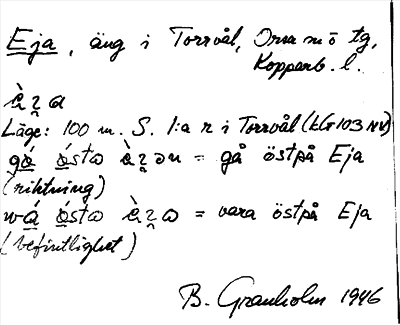 Eja, äng i Torrvål, Orsa mö tg,
Kopparb. l.
Läge: 100 m. S. l:a r i Torrvål (kG103 NV)
= gå östpå Eja
(riktning)
= vara östpå Eja
(befintlighet)
B. Granholm 1946